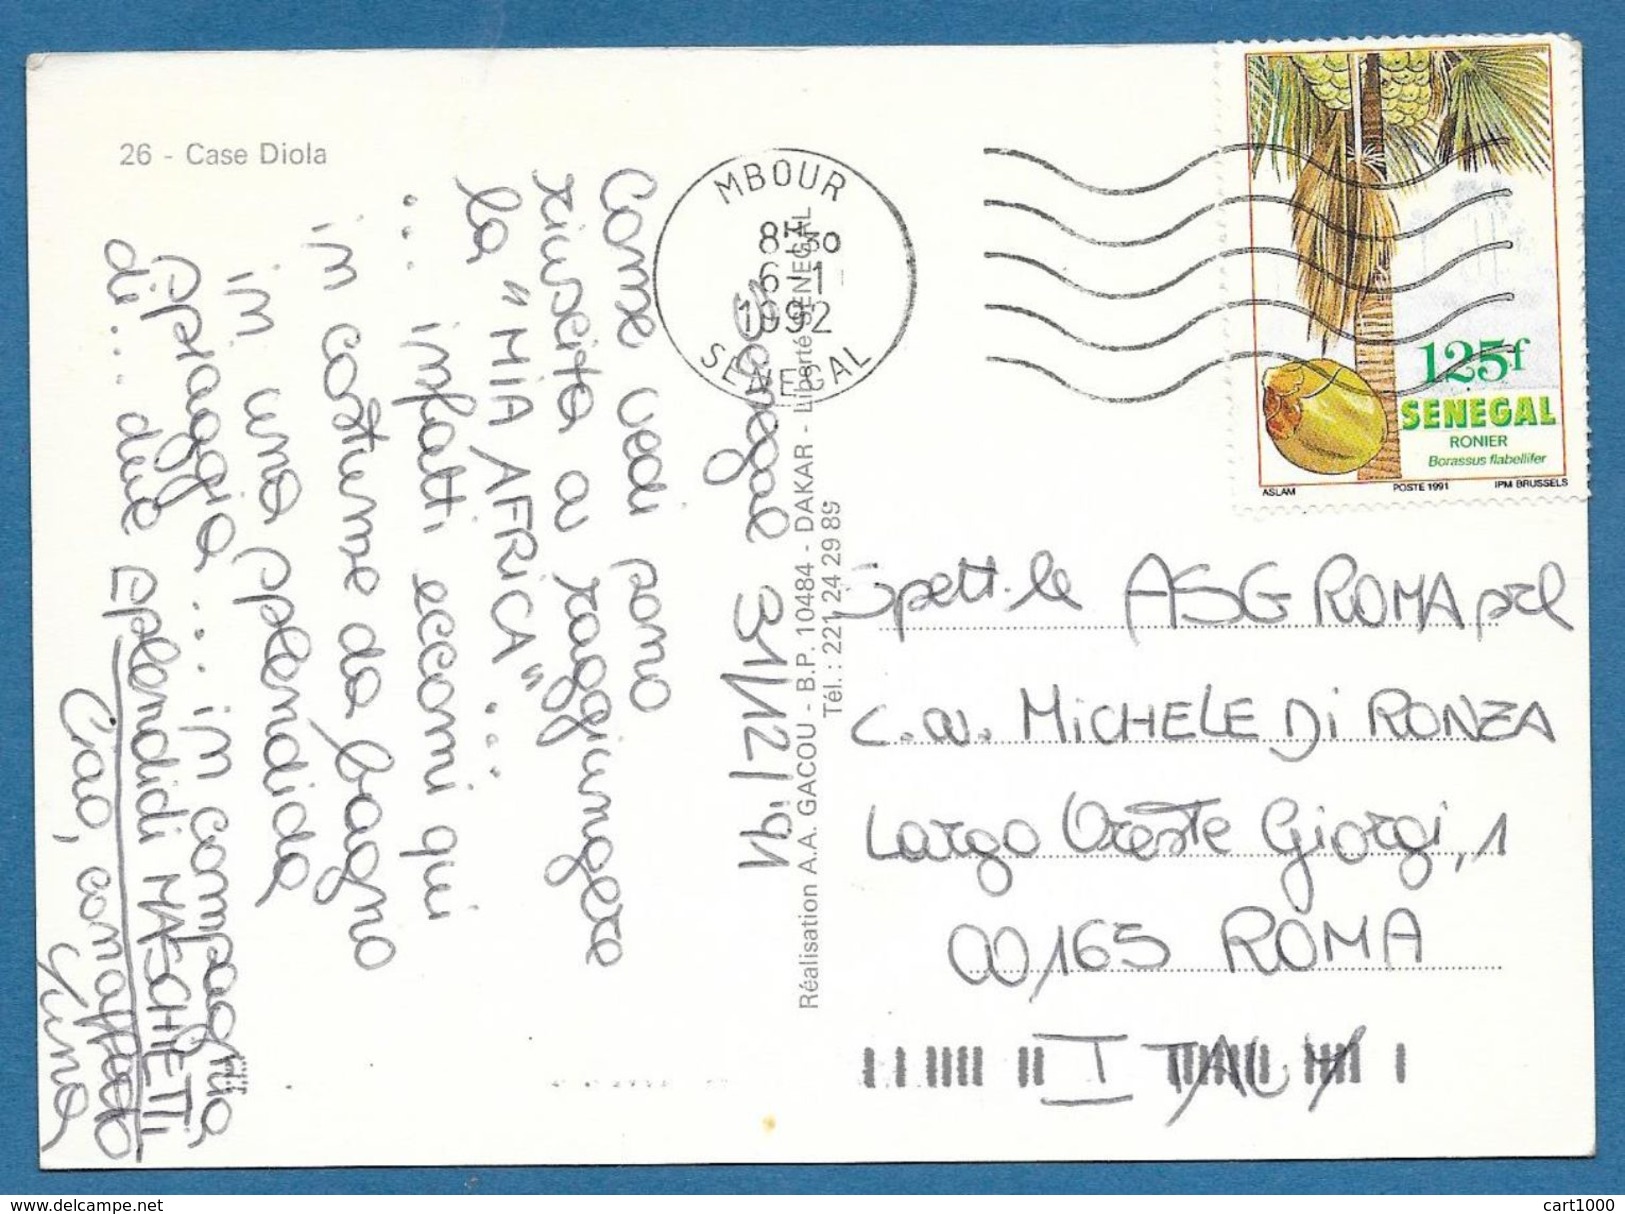 26 - Case Diola
Senegal 31/12/'91
Come vedi sono
riuscita a raggiungere
la "MIA AFRICA" ...
... infatti eccomi qui
in costume da bagno
in una splendida
spiaggia ... in compagnia
di ... due splendidi MASCHIETTI
Ciao, con affetto
Réalisation A.A. GACOU - B.P. 10484 - DAKAR - Liberté SENEGAL
Tél. : 221 24 29 89
MBOUR
8H30
6-1
1992
SENEGAL
125f
SENEGAL
RONIER
Borassus flabellifer
ASLAM POSTE 1991 IPM BRUSSELS
Spett.le ASG ROMA srl
c.a. MICHELE DI RONZA
Largo Oreste Giorgi, 1
00165 ROMA
ITALY
cart1000